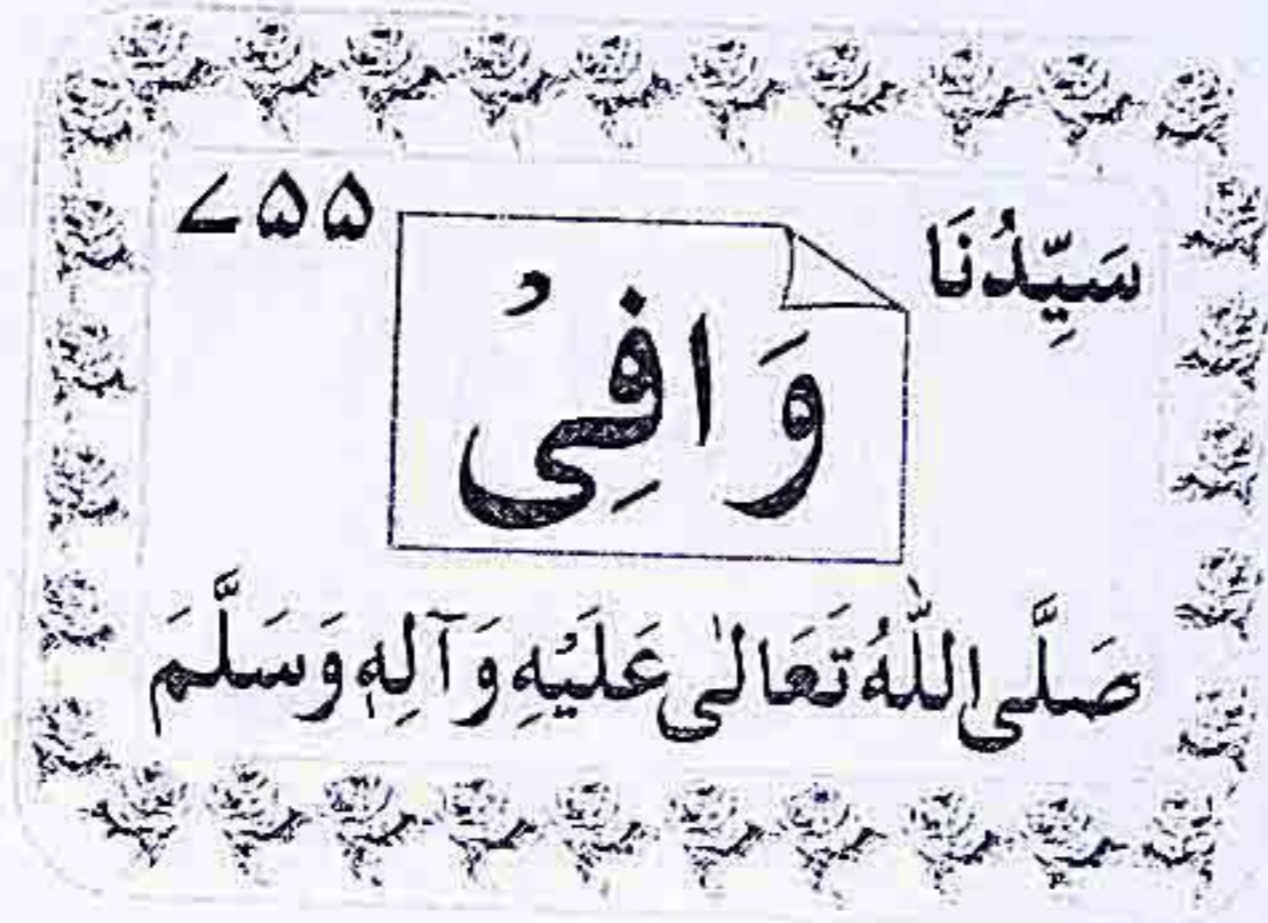 سَيِّدُنَا ۷۵۵
وَافِیْ
صَلَّی اللّٰهُ تَعَالٰی عَلَیْهِ وَآلِهٖ وَسَلَّمَ